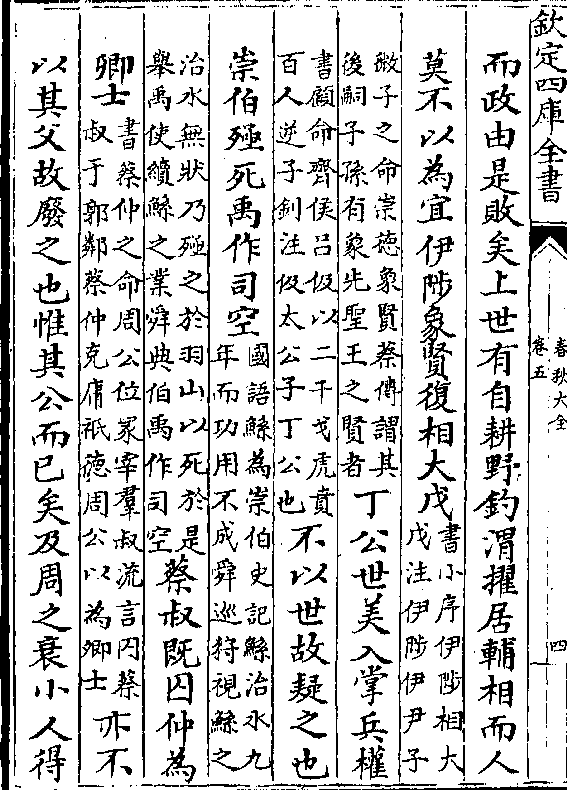 欽定四庫全書
春秋大全
卷五
四
而政由是敗矣上世有自耕野釣渭擢居輔相而人
莫不以為宜伊陟象賢復相大戊
書小序伊陟相大
戊注伊陟伊尹子
微子之命崇徳象賢蔡傳謂其
後嗣子孫有象先聖王之賢者
丁公世美入掌兵權
書顧命齊侯吕伋以二干戈虎賁
百人逆子釗注伋太公子丁公也
不以世故疑之也
崇伯殛死禹作司空
國語鯀為崇伯史記鯀治水九
年而功用不成舜巡狩視鯀之
治水無狀乃殛之於羽山以死於是
舉禹使續鯀之業舜典伯禹作司空
蔡叔既囚仲為
卿士
書蔡仲之命周公位冢宰羣叔流言囚蔡
叔于郭鄰蔡仲克庸祗徳周公以為卿士
亦不
以其父故廢之也惟其公而已矣及周之衰小人得